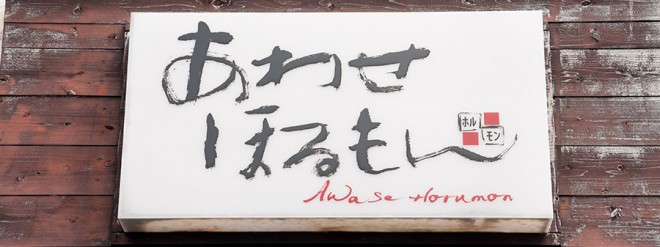 あわせ
ほるもん
ホル
モン
Awase Horumon